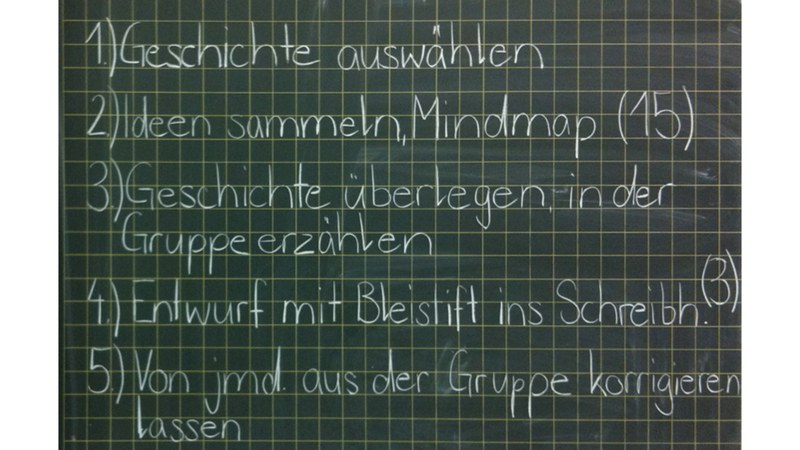 1.) Geschichte auswählen
2.) Ideen sammeln, Mindmap (15)
3.) Geschichte überlegen, in der
Gruppe erzählen
4.) Entwurf mit Bleistift ins Schreibh. (3)
5.) Von jmd. aus der Gruppe korrigieren
lassen